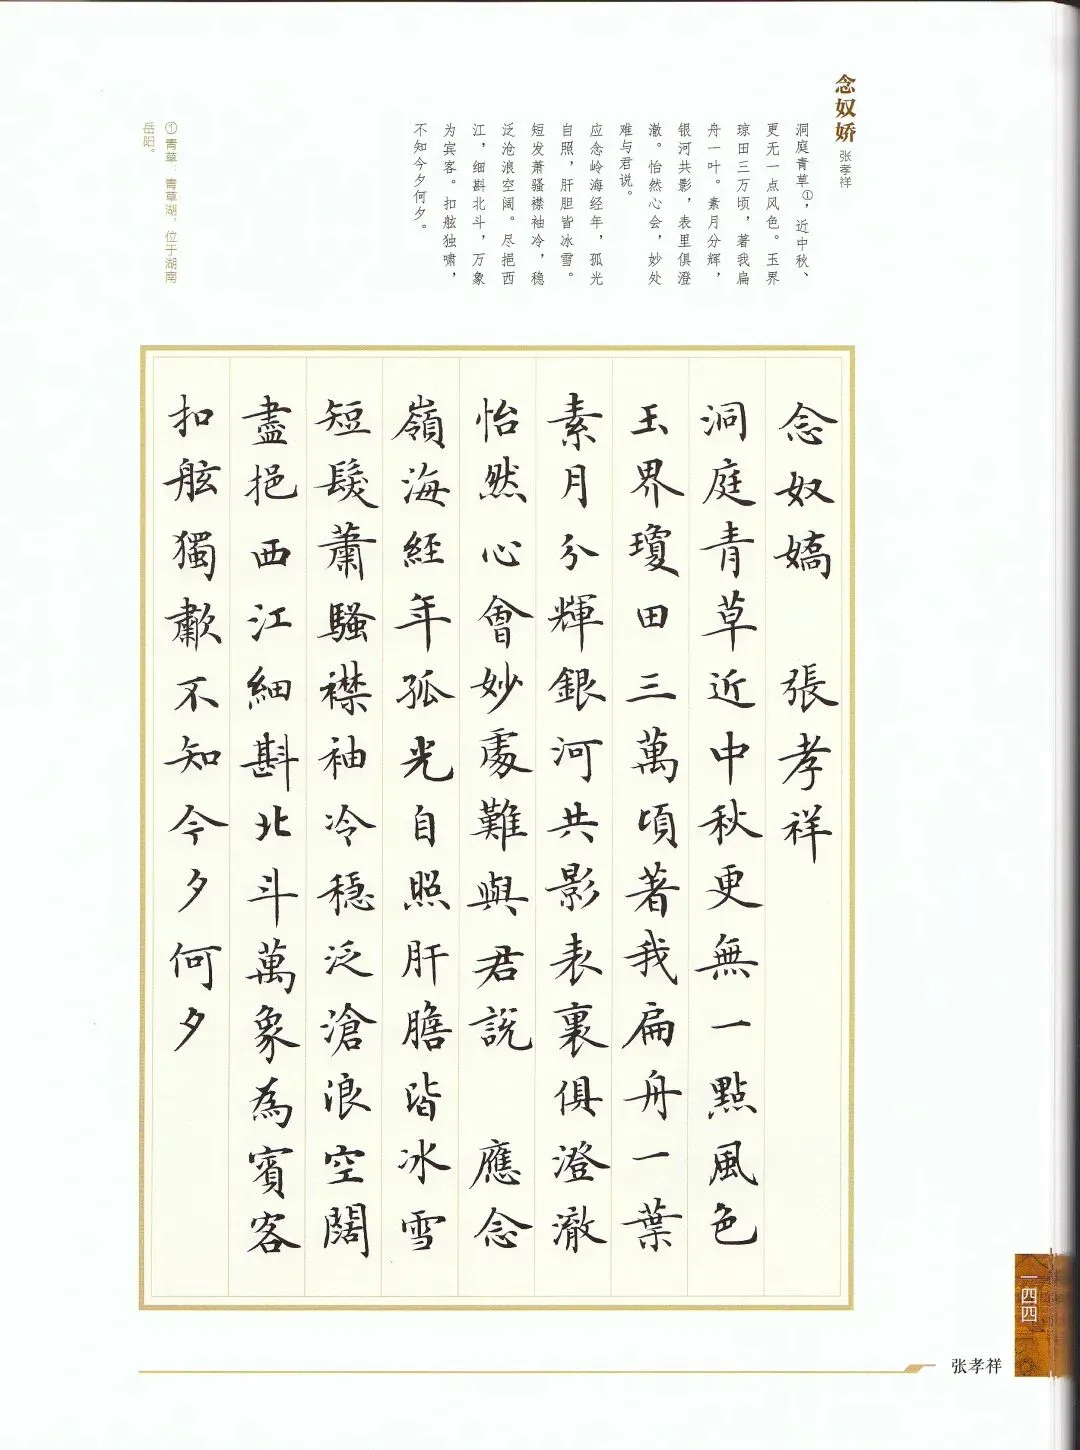 念奴娇
张孝祥
洞庭青草①，近中秋、
更无一点风色。玉界
琼田三万顷，著我扁
舟一叶。素月分辉，
银河共影，表里俱澄
澈。怡然心会，妙处
难与君说。
应念岭海经年，孤光
自照，肝胆皆冰雪。
短发萧骚襟袖冷，稳
泛沧浪空阔。尽挹西
江，细斟北斗，万象
为宾客。扣舷独啸，
不知今夕何夕。
①青草：青草湖，位于湖南
岳阳。
念奴嬌 張孝祥
洞庭青草近中秋更無一點風色
玉界瓊田三萬頃著我扁舟一葉
素月分輝銀河共影表裏俱澄澈
怡然心會妙處難與君說 應念
嶺海經年孤光自照肝膽皆冰雪
短髮蕭騷襟袖冷穩泛滄浪空闊
盡挹西江細斟北斗萬象為賓客
扣舷獨歗不知今夕何夕
一四四
张孝祥